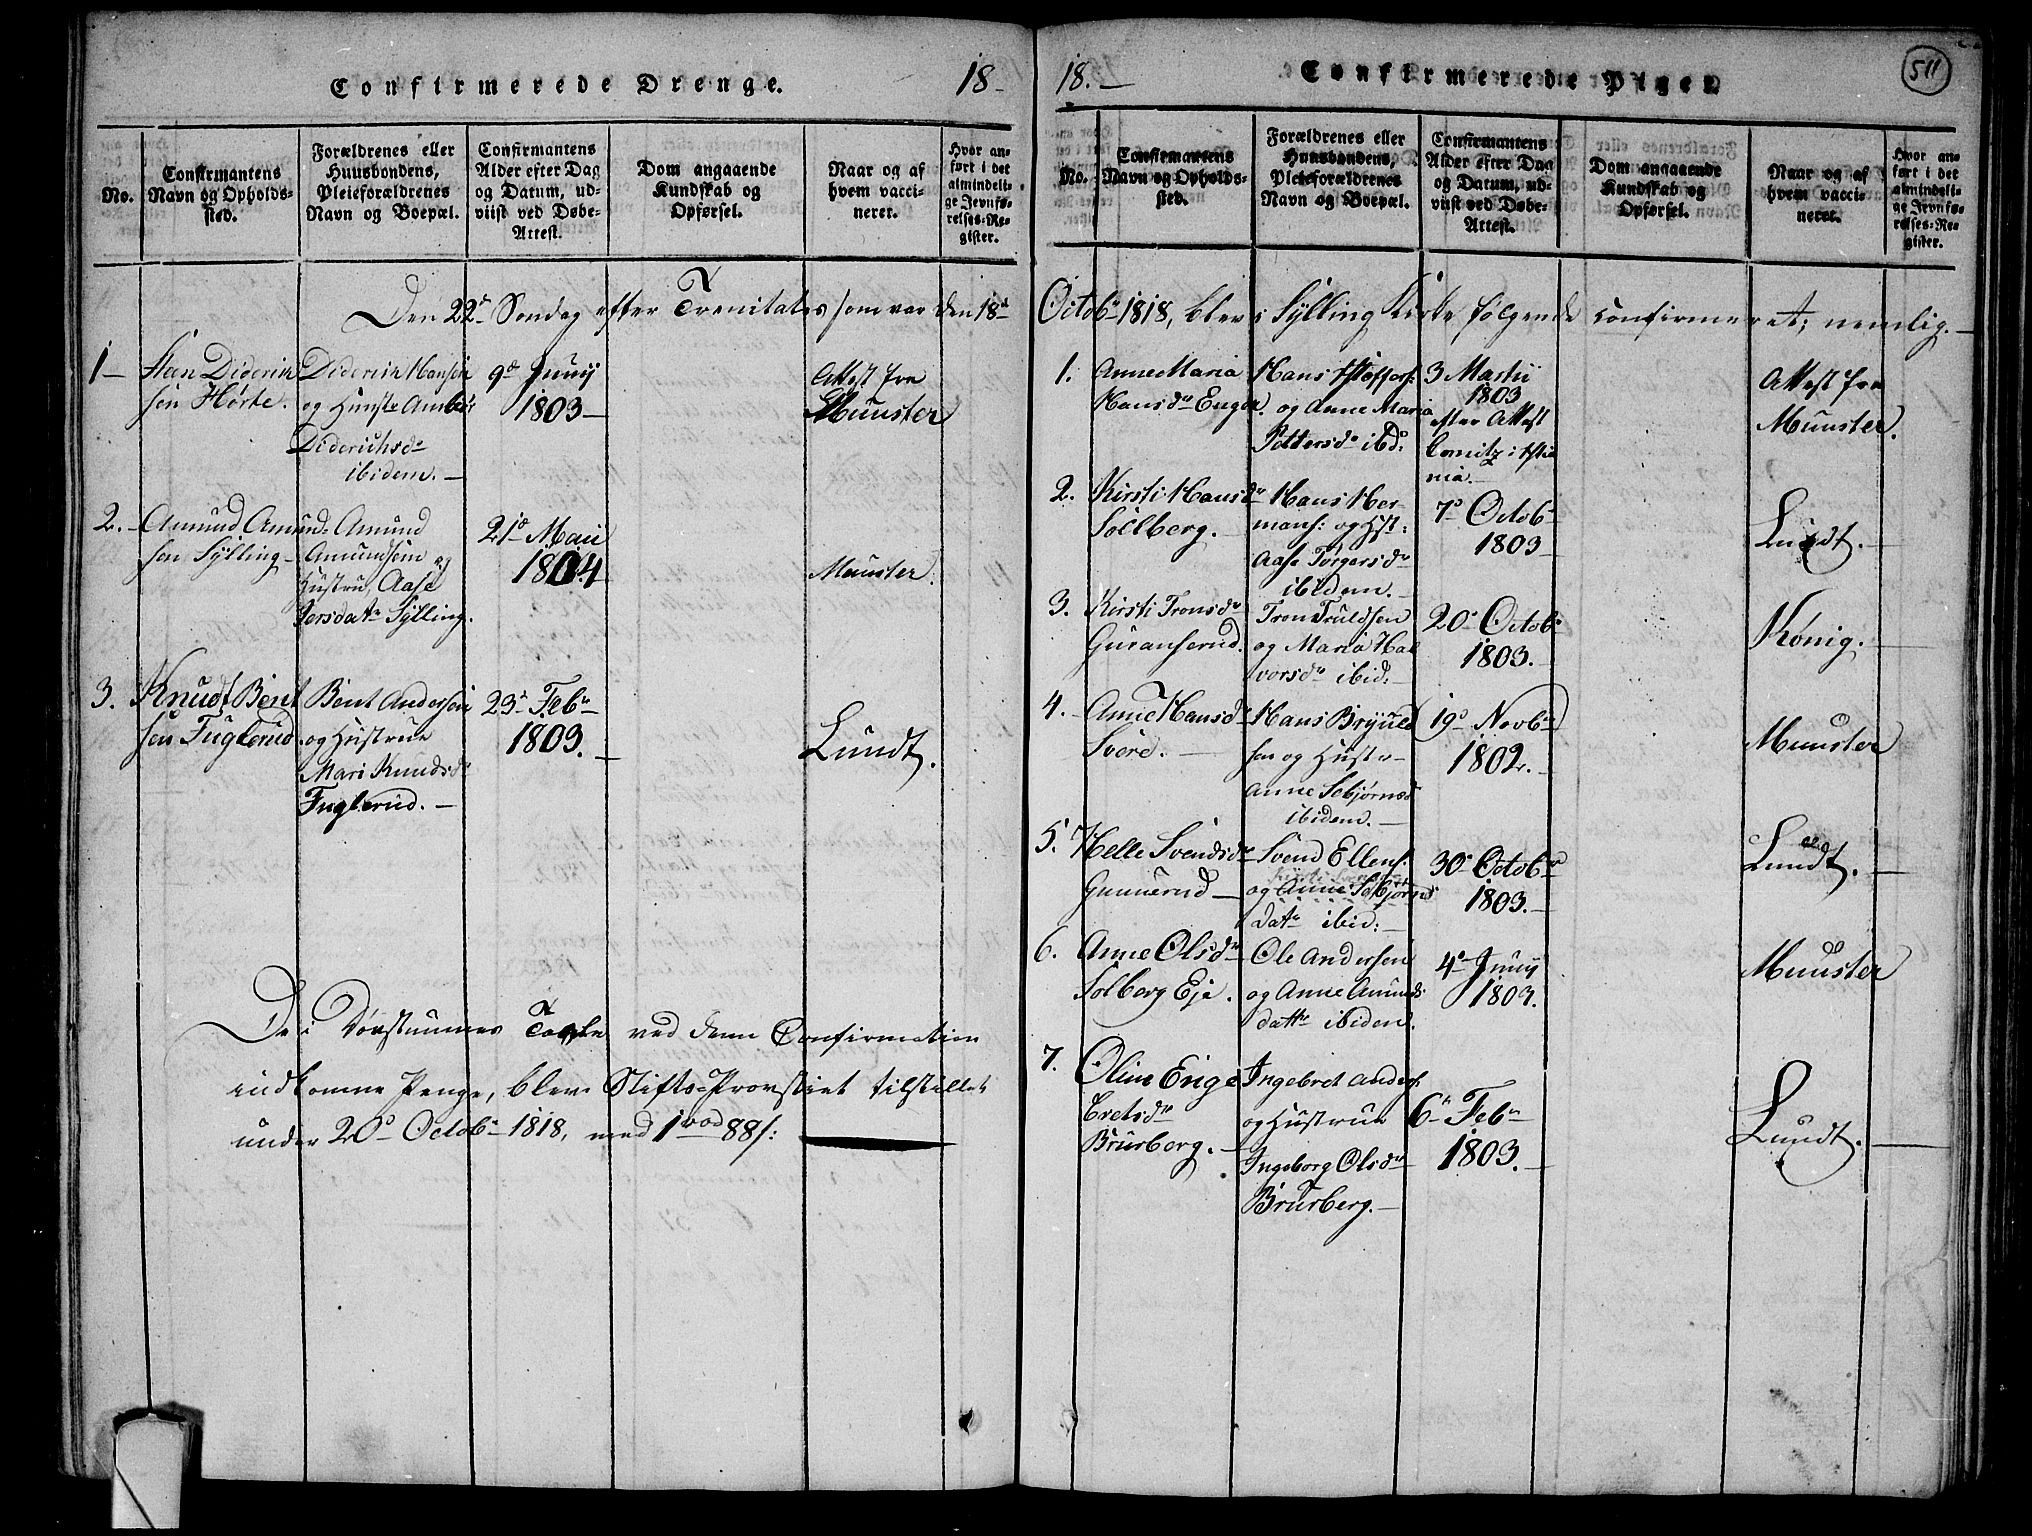 Confirmerede Drenge.
18-
No.
Confirmantens
Navn og Opholds-
sted.
Forældrenes eller
Huusbondens,
Pleieforældrenes
Navn og Boepæl.
Confirmantens
Alder efter Dag
og Datum, ud-
viist ved Døbe-
Attest.
Dom angaaende
Kundskab og
Opførsel.
Naar og af
hvem vacci-
neret.
Hvor an-
ført i det
almindeli-
ge Jevnfø-
relses-Re-
gister.
Den 22de Søndag efter Trenitatis som var den 18d
1-
Steen Diderich
sen Hørte.
Diderich Hansen
og Hustr
Diderichsdr
ibidem.-
9de Junij
1803-
Attest fra
Munster
2.-
Amund Amund-
sen Sylling-
Amund
Amundsen og
Hustru, Aase
Iersdatr Sylling.
21de Maii
1804
Munster.
3.
Knudt Bent
sen Fuglerud
Bent Andersen
og Hustrue
Mari Knudsdr
Fuglerud.-
23de Febr
1803.-
Lundt.
De i Dørstuernes Tavle ved denne Confirmation
indkomne Penge, blev Stifts-Provstiet tilstillet
under 20de Octobr 1818, med 1rbd 88s:
18.-
Confirmerede Piger.
511
No.
Confirmantens
Navn og Opholds-
sted.
Forældrenes eller
Huusbondens,
Pleieforældrenes
Navn og Boepæl.
Confirmantens
Alder efter Dag
og Datum, ud-
viist ved Døbe-
Attest.
Dom angaaende
Kundskab og
Opførsel.
Naar og af
hvem vacci-
neret.
Hvor an-
ført i det
almindeli-
ge Jevnfø-
relses-Re-
gister.
Octobr 1818, blev i Sylling Kirke følgende confirmeret; nemlig.-
1.
Anne Maria
Hansdr Enger.
Hans
og Anne Maria
Pettersdr ibd:
3 Martii
1803
efter Attest
Attest fra
Munster.
2.
Kirsti Hansdr
Sollberg.
Hans Her-
mans: og Hst:
Aase Torgersdr
ibidem.-
7de Octobr
1803-
Lundt.-
3.
Kirsti Tronsdr
Guranserud.
Tron Truldsen
og Maria Hal
vorsdr ibid:
20de Octobr
1803.-
Kønig.-
4.
Anne Hansdr
Svere.-
Hans Brynild
sen og Hustr-
Anne Sebjørnsd
ibidem.-
19de Novbr
1802.-
Munster
5.
Helle Svendsdr
Gunnerud-
Svend Ellens:
og Anne Sebjørns
datr ibid:-
30de Octobr
1803.-
Lundt.-
6.
Anne Olsdr
Solberg Eje.
Ole Andersen
og Anne Amunds
dattr ibidem.
4de Junij
1803.
Munster
7.
Oline Enge
bretsdr
Brurberg.-
Ingebret Anders:
og Hustrue
Ingeborg Olsdr
Brurberg.-
6te Febr
1803.-
Lundt.-